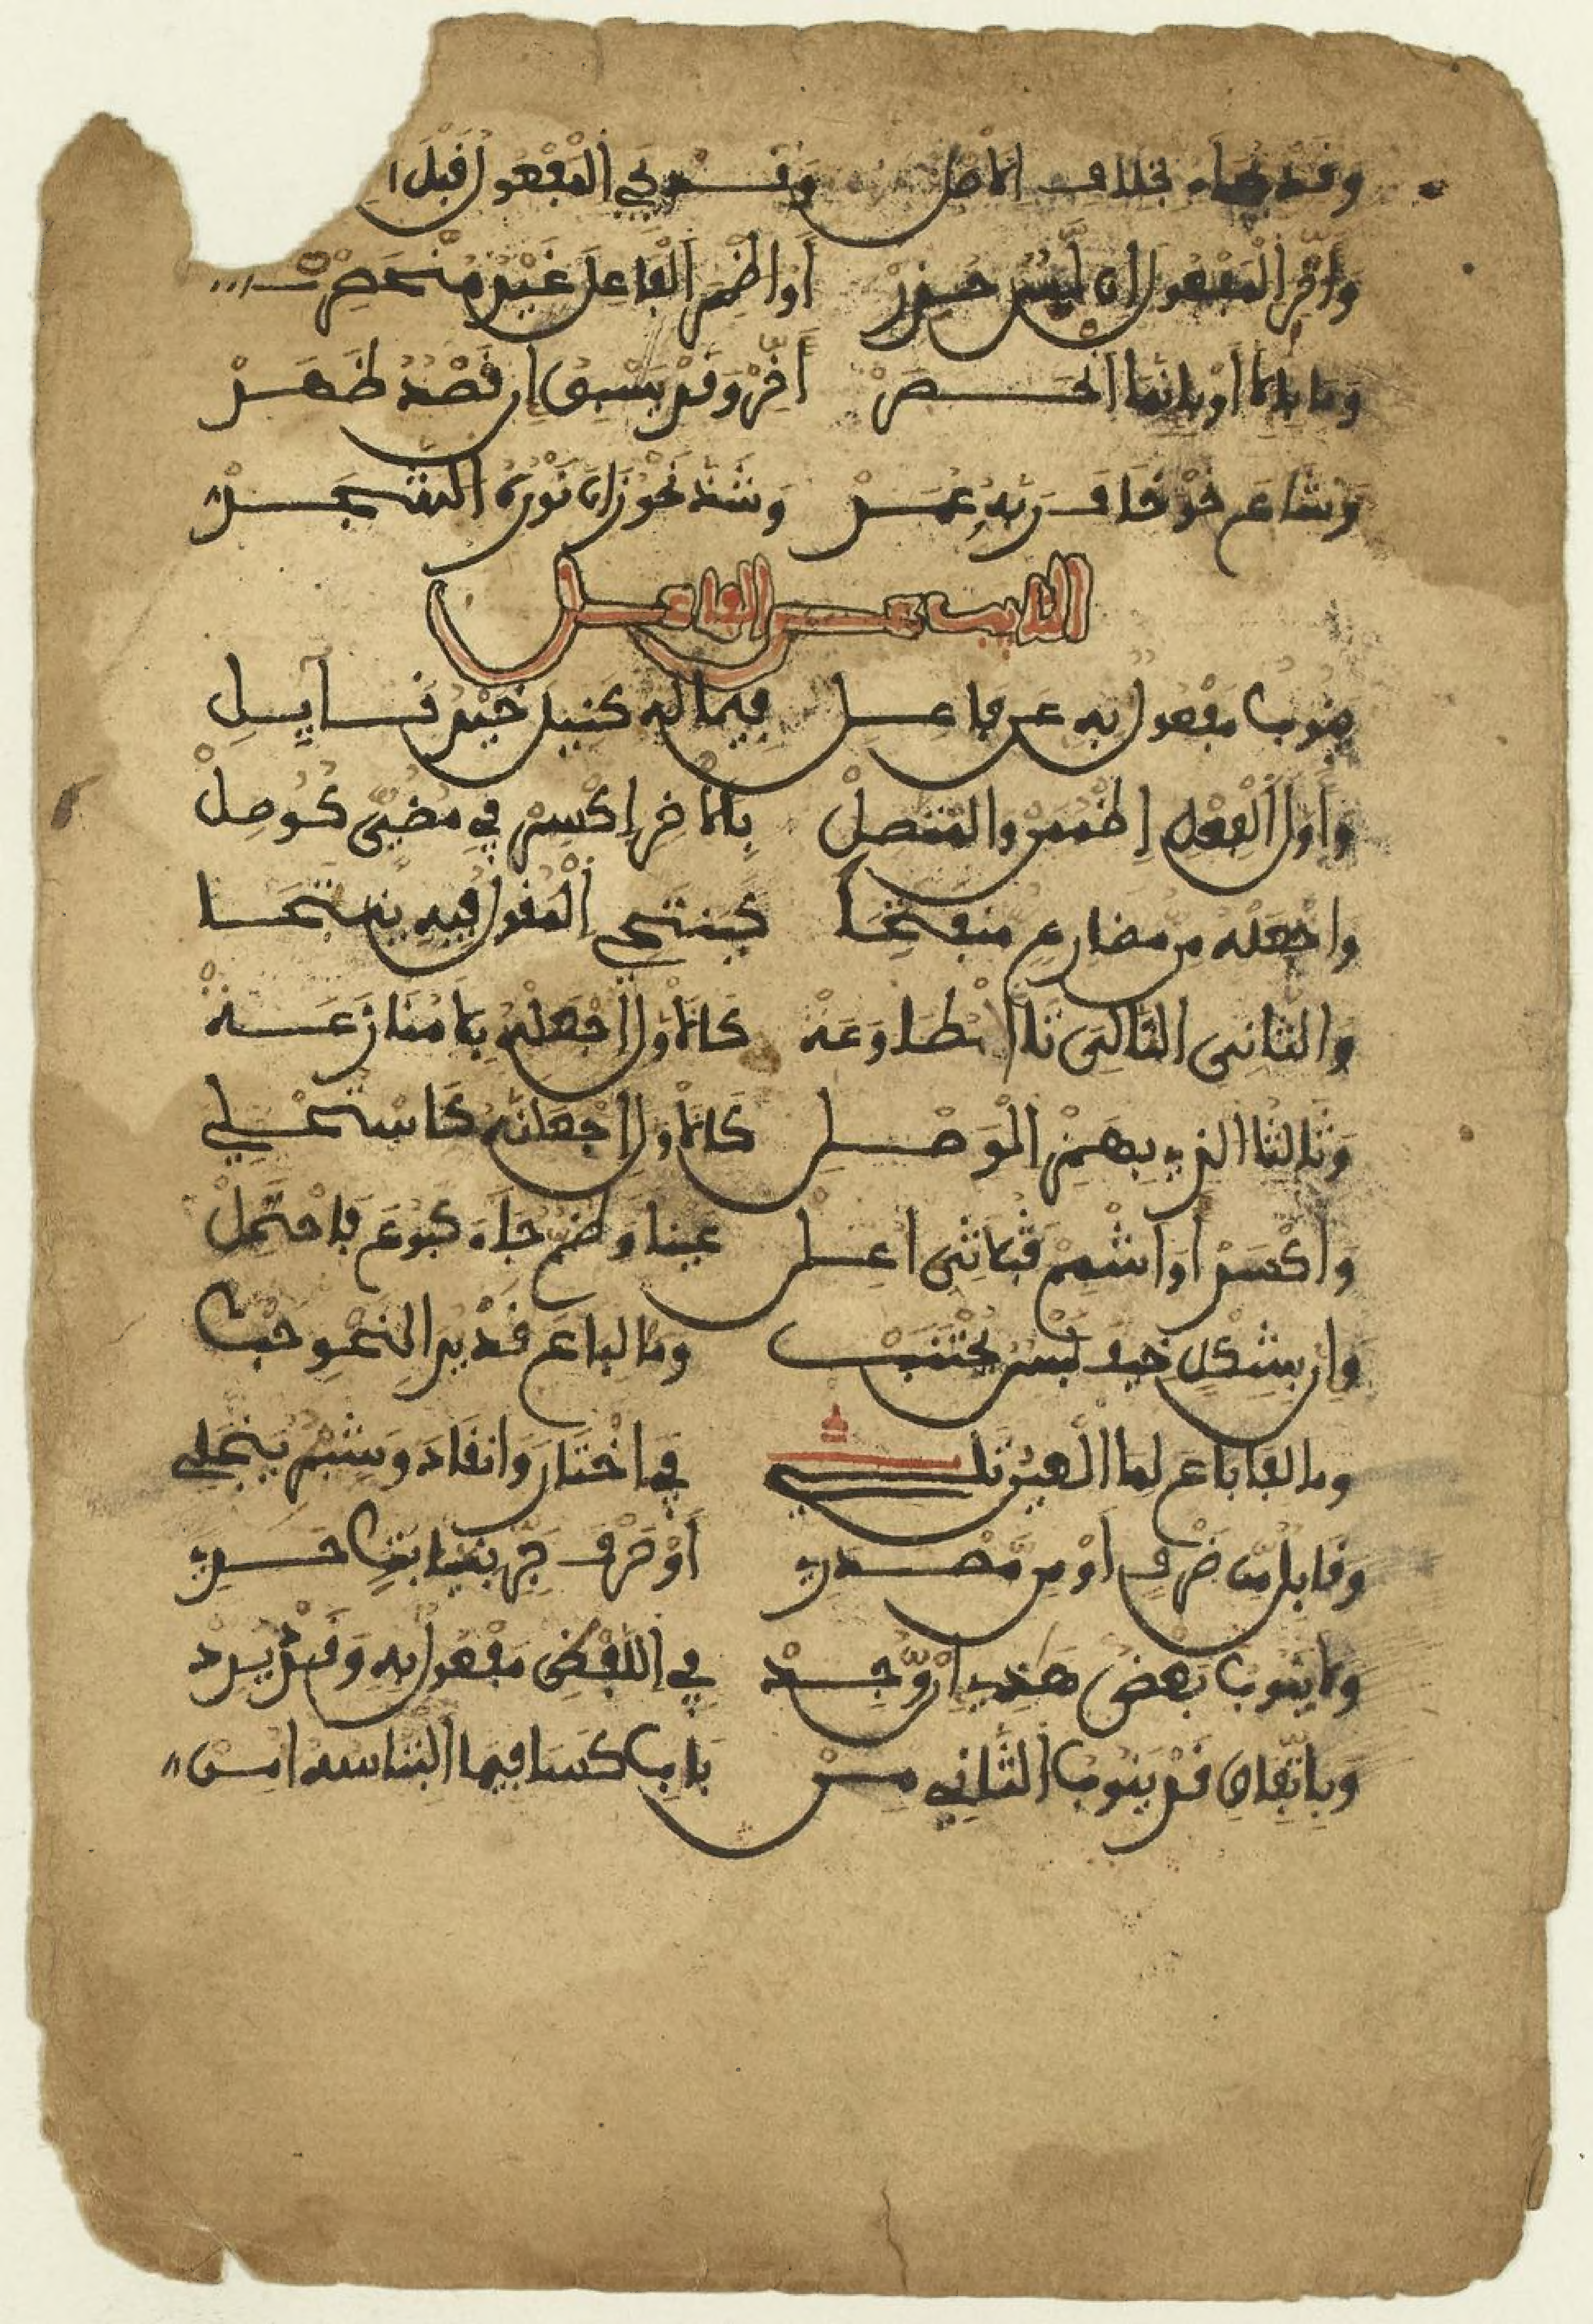 وقد يجاء بخلاف الاصل وقد يجي المفعول قبل ا
وَأَخِّرِ الْمَفْعُولَ ان لَبْسٌ حُذِرْ أَوُ اضْمِرَ الْفَاعِلُ غَيْرَ مُنْحَصِرْ
وَمَا بِإِلَّا أَوْ بِإِنَّمَا انْحَصَرْ أَخِّرْ وَقَدْ يَسْبِقُ إِن قَصْدٌ ظَهَرْ
وَشَاعَ نحْوُ خَافَ رَبَّهُ عُمَرْ وَشَذَّ نحْوُ زَانَ نَوْرُهُ الشَّجَرْ
النايب عن الفاعل
ينوب مفعول به عن فاعل فيما له كنيل خير نـايـل
وَأَوَّلَ الْفِعْلِ اضْمُمَنْ وَالمُتَّصِلْ بِالاخِرِ اكْسِرْ فِي مُضِيٍّ كَوُصِلْ
وَاجْعَلْهُ مِن مُّضَارِعٍ مُنفَتِحَا كَيَنتَحِي الْمَقُولِ فِيهِ يُنتَحَا
وَالثَّانِيَ التَّالِيَ تَا الْمُطَاوَعَهْ كَالأَوَّلِ اجْعَلْهُ بِلَا مُنَازَعَهْ
وَثَالِثَ الَّذِي بِهَمْزِ الْوَصْلِ كَالأَوَّلِ اجْعَلَنَّهُ كَاسْتُحْلِي
وَاكْسِرْ أَوِ اشْمِمْ فَا ثُلَاثِيٍّ اعِلّْ عَيْنًا وَضَمٌّ جَاءَ كَبُوعَ فَاحْتُمِلْ
وَإِن بِشَكْلٍ خِيفَ لَبْسٌ يُجْتَنَبْ وَمَا لِبَاعَ قَدْ يُرَى لِنَحْوِ حَبّْ
وَمَا لِفَا بَاعَ لِمَا الْعَيْنُ تَلِي فِي اخْتَارَ وَانقَادَ وَشِبْهٍ يَنجَلِي
وَقَابِلٌ مِن ظَرْفٍ اوْ مِن مَّصْدَرِ أَوْ حَرْفِ جَرٍّ بِنِيَابَةٍ حَرِي
وَلَا يَنُوبُ بَعْضُ هَذِي إِن وُّجِدْ فِي اللَّفْظِ مَفْعُولٌ بِهِ وَقَدْ يَرِدْ
وَبِاتِّفَاقٍ قَدْ يَنُوبُ الثَّانِي مِنْ بَابِ كَسَا فِيمَا الْتِبَاسُهُ امِنْ